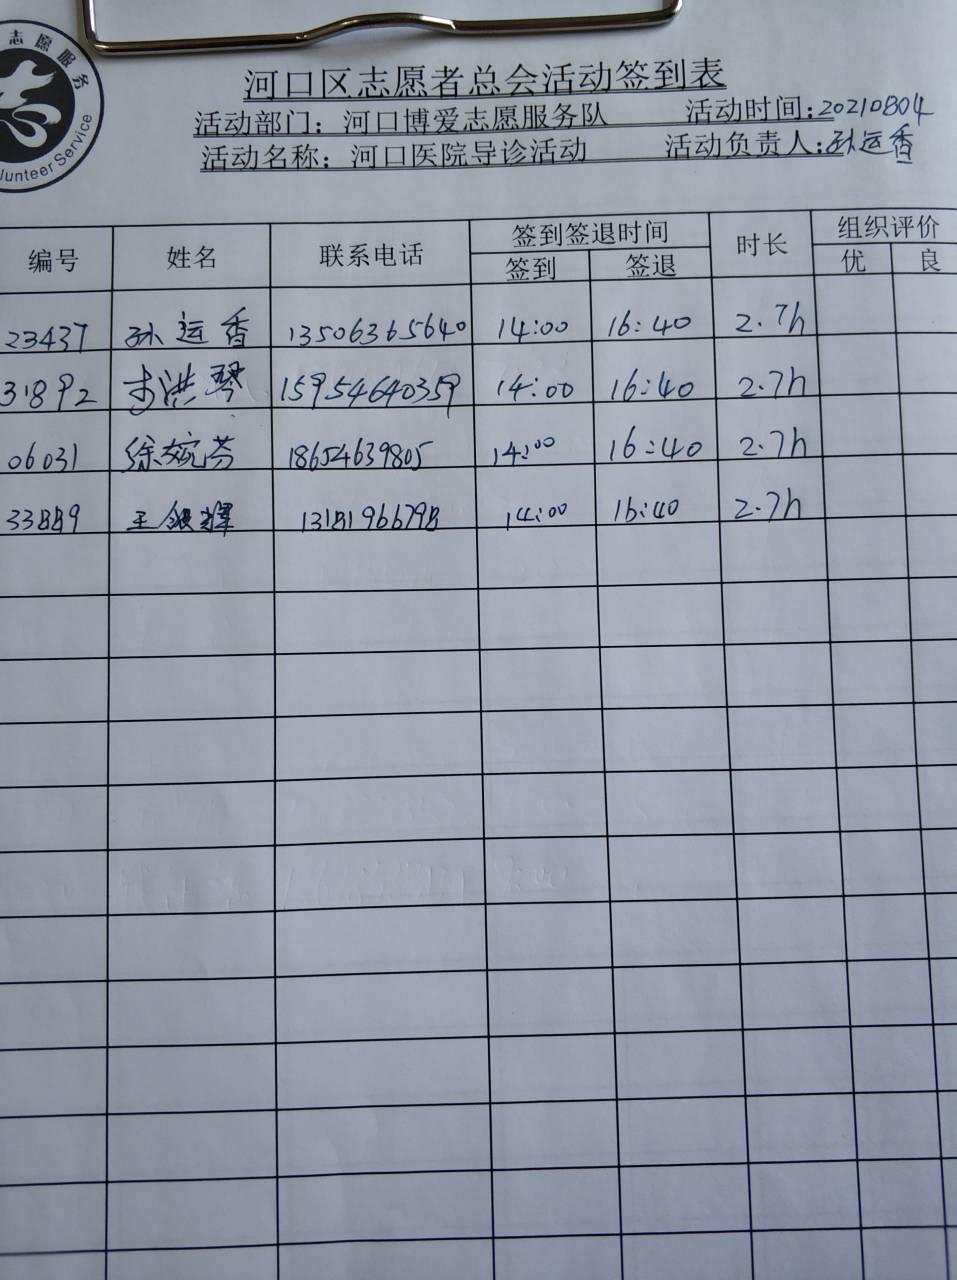 志愿服务
Volunteer Service
河口区志愿者总会活动签到表
活动部门：河口博爱志愿服务队 活动时间：20210804
活动名称：河口医院导诊活动 活动负责人：孙运香
编号 姓名 联系电话 签到签退时间 时长 组织评价
签到 签退 优 良
23437 孙运香 13506365640 14:00 16:40 2.7h
31892 李洪琴 15954640359 14:00 16:40 2.7h
06031 徐婉芬 18654639805 14:00 16:40 2.7h
33889 王银辉 13181966798 14:00 16:40 2.7h